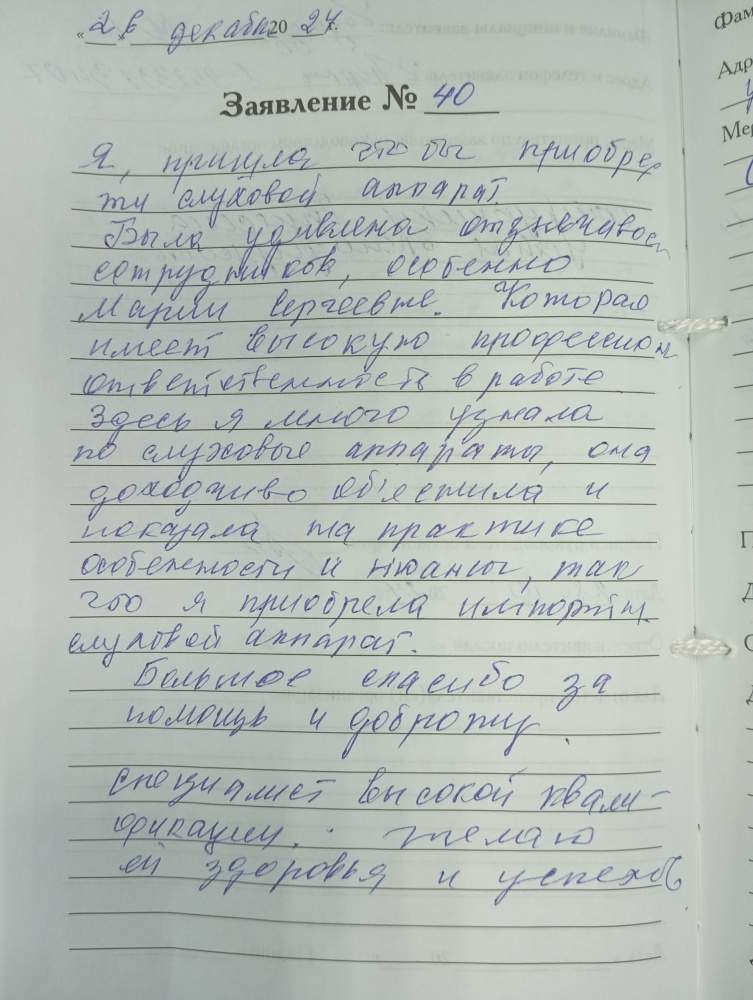 «2» в декабр 20 24 г.
Заявление № 40
Я, пришла что бы приобрес
ти слуховой аппарат.
Была удивлена отзывчивост
сотрудников, особенно
Марии Сергеевне. Которая
имеет высокую профессион
ответственность в работе
Здесь я много узнала
по слуховые аппараты, она
доходчиво об'яснила и
показала на практике
особенности и нюансы, так
что я приобрела импортн.
слуховой аппарат.
Большое спасибо за
помощь и доброту.
специалист высокой квали-
фикации. желаю
ей здоровья и успехов
Фам
Адр
Мер